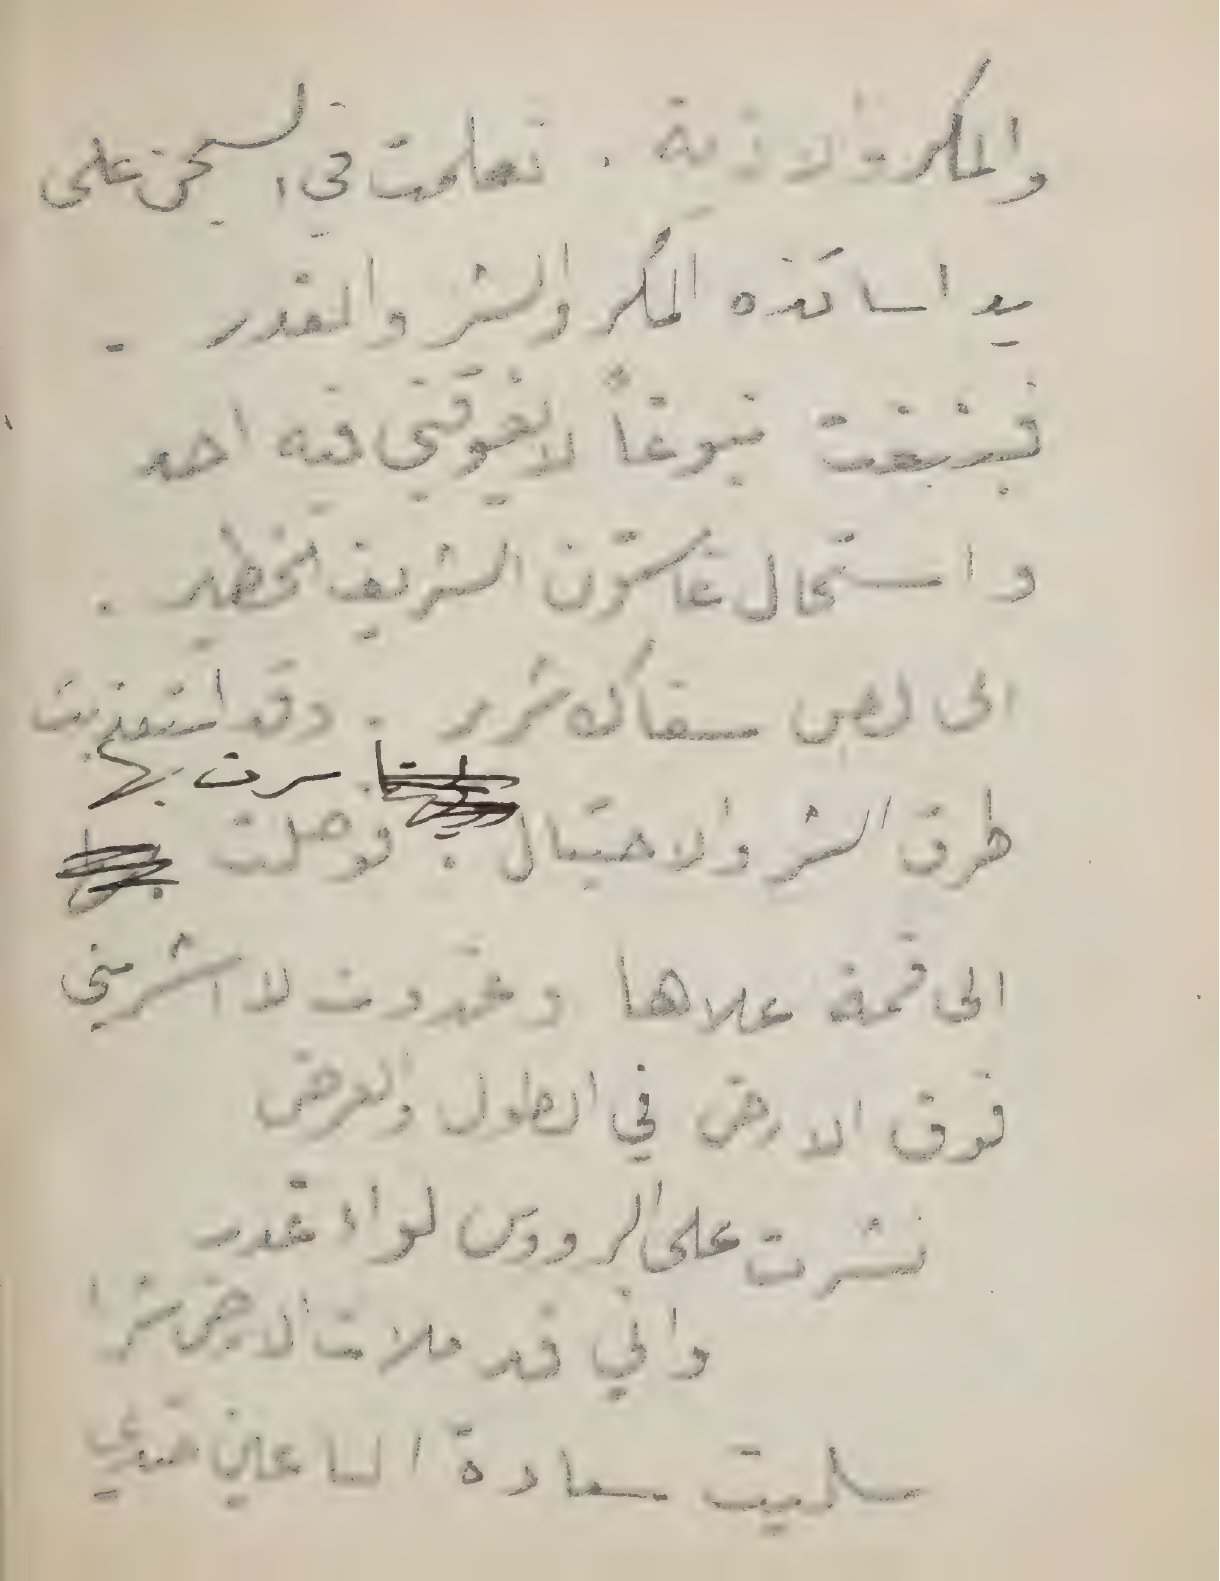 والمكر والاذية . تعلمت في السجن على
يد اساتذه المكر والشر والغدر .
فنبغت نبوغاً لا يفوقني فيه احد
واستحال غاستون الشريف الخطير .
الى لص سفاك شرير . وقد استعذبت
سرت بها
طرق الشر والاحتيال . فوصلت
الى قمة علاها وغدوت لا اشر مني
فوق الارض في الطول والعرض
نشرت على الرووس لواء غدر
واني قد ملات الارض شرا
سلبت سعادة